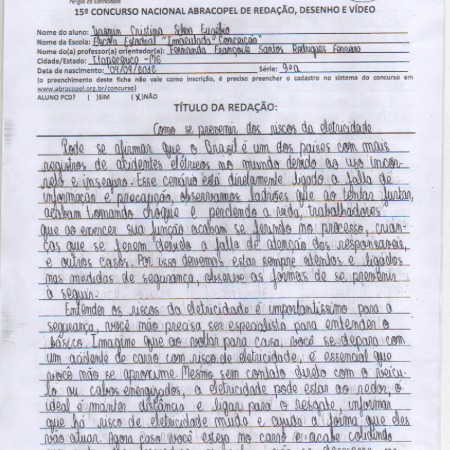 15º CONCURSO NACIONAL ABRACOPEL DE REDAÇÃO, DESENHO E VÍDEO
Nome do aluno: Yasmin Cristina Silva
Nome da Escola: Escola Estadual "Imaculada Conceição"
Nome do(a) professor(a) orientador(a): Fernanda Françoyse Santos Rodrigues
Cidade/Estado: - MG
Data de nascimento: Série: 9º
(o preenchimento deste ficha não vale como inscrição, é preciso preencher o cadastro no sistema do concurso em
www.abracopel.org.br/concurso)
ALUNO PCD? ( )SIM (X)NÃO
TÍTULO DA REDAÇÃO:
Como se prevenir dos riscos da eletricidade
Pode se afirmar que o Brasil é um dos países com mais
registros de acidentes elétricos no mundo devido ao uso incor-
reto e inseguro. Esse cenário está diretamente ligado a falta de
informação e precaução, observamos ladrões que ao tentar furtar,
acabam tomando choque e perdendo a vida, trabalhadores
que ao exercer sua função acabam se ferindo no processo, crian-
ças que se ferem devido a falta de atenção dos responsáveis,
e outros casos. Por isso devemos estar sempre atentos e ligados
nas medidas de segurança, observe as formas de se prevenir
a seguir.
Entender os riscos da eletricidade é importantíssimo para a
segurança, você não precisa ser especialista para entender o
básico. Imagine que ao voltar para casa, você se depara com
um acidente de carro com risco de eletricidade, é essencial que
você não se aproxime. Mesmo sem contato direto com o veícu-
lo ou cabos energizados, a eletricidade pode estar ao redor, o
ideal é manter distância e ligar para o resgate, informar
que há risco de eletricidade muda e ajuda a forma que eles
vão atuar. Agora caso você esteja no carro e acabe colidindo